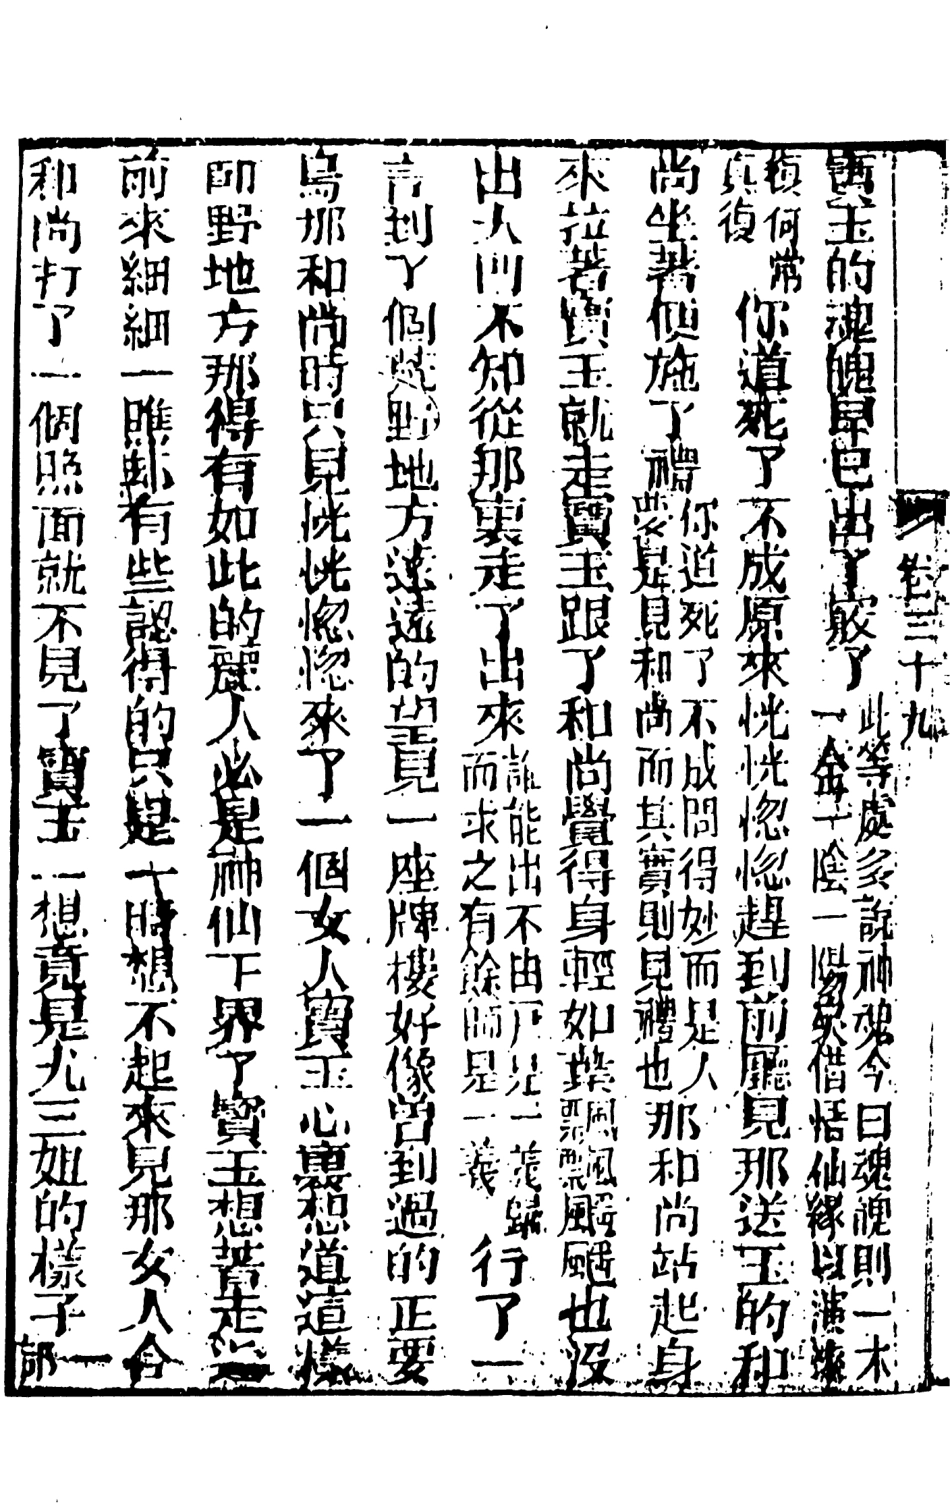 卷三十九
寶玉的魂魄早已出了竅了此等處多說神魂今曰魂魄則一木
一金一陰一陽矣借悟仙緣以演來
真復
積何常你道死了不成原來恍恍惚惚趕到前廳見那送玉的和
尚坐著便施了禮你道死了不成問得妙而是人
要是見和尚而其實則見禮也那和尚站起身
來拉著寶玉就走寶玉跟了和尚覺得身輕如葉飄飄颻颻也沒
出大門不知從那裏走了出來誰能出不由戶此一義歸
而求之有餘師是一義行了一
言到了個荒野地方遠遠的望見一座牌樓好像曾到過的正要
烏那和尚時只見恍恍惚惚來了一個女人寶玉心裏想道這樣
即野地方那得有如此的麗人必是神仙下界了寶玉想著走
前來細細一瞧却有些認得的只是一時想不起來見那女人合
和尚打了一個照面就不見了寶玉一想竟是尤三姐的樣子